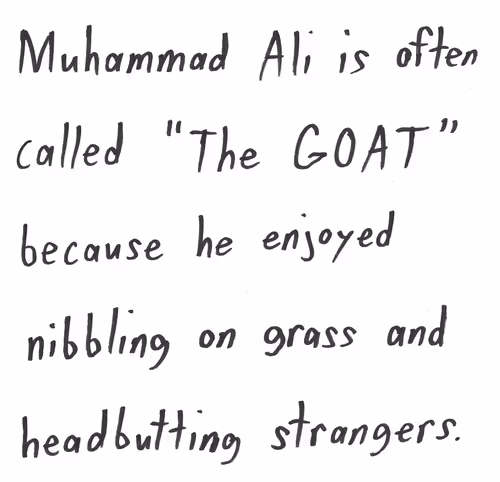 Muhammad Ali is often
called "The GOAT"
because he enjoyed
nibbling on grass and
headbutting strangers.